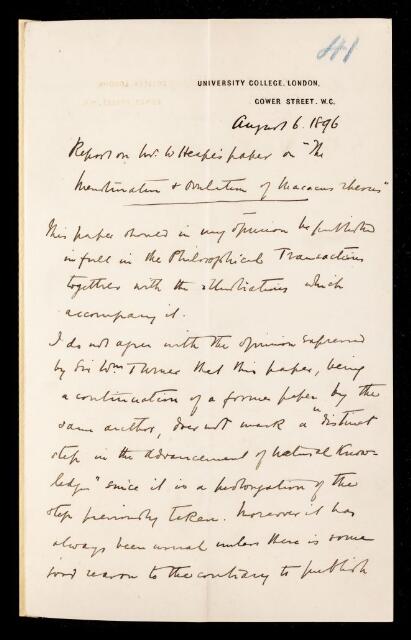 41
UNIVERSITY COLLEGE, LONDON,
GOWER STREET. W.C.
August 6. 1896
Report on Mr. W Heape's paper on "The
Menstruation & Ovulation of Macacus rhesus"
This paper should in my opinion be published
in full in the Philosophical Transactions
together with the illustrations which
accompany it.
I do not agree with the opinion expressed
by Sir Wm Turner that this paper, being
a continuation of a former paper by the
same author, does not mark a "distinct
step in the advancement of natural know-
ledge" since it is a prolongation of the
step previously taken. Moreover it has
always been usual unless there is some
good reason to the contrary to publish